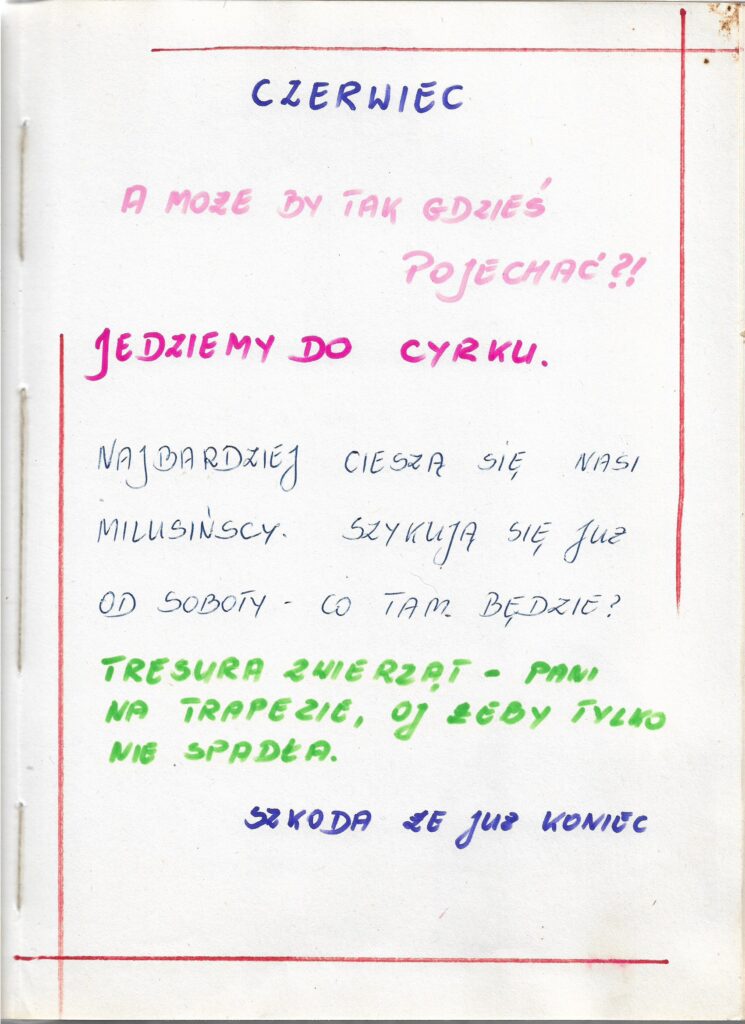 CZERWIEC
A MOŻE BY TAK GDZIEŚ
POJECHAĆ?!
JEDZIEMY DO CYRKU.
NAJBARDZIEJ CIESZĄ SIĘ NASI
MILUSIŃSCY. SZYKUJĄ SIĘ JUŻ
OD SOBOTY - CO TAM BĘDZIE?
TRESURA ZWIERZĄT - PANI
NA TRAPEZIE, OJ ŻEBY TYLKO
NIE SPADŁA.
SZKODA ŻE JUŻ KONIEC